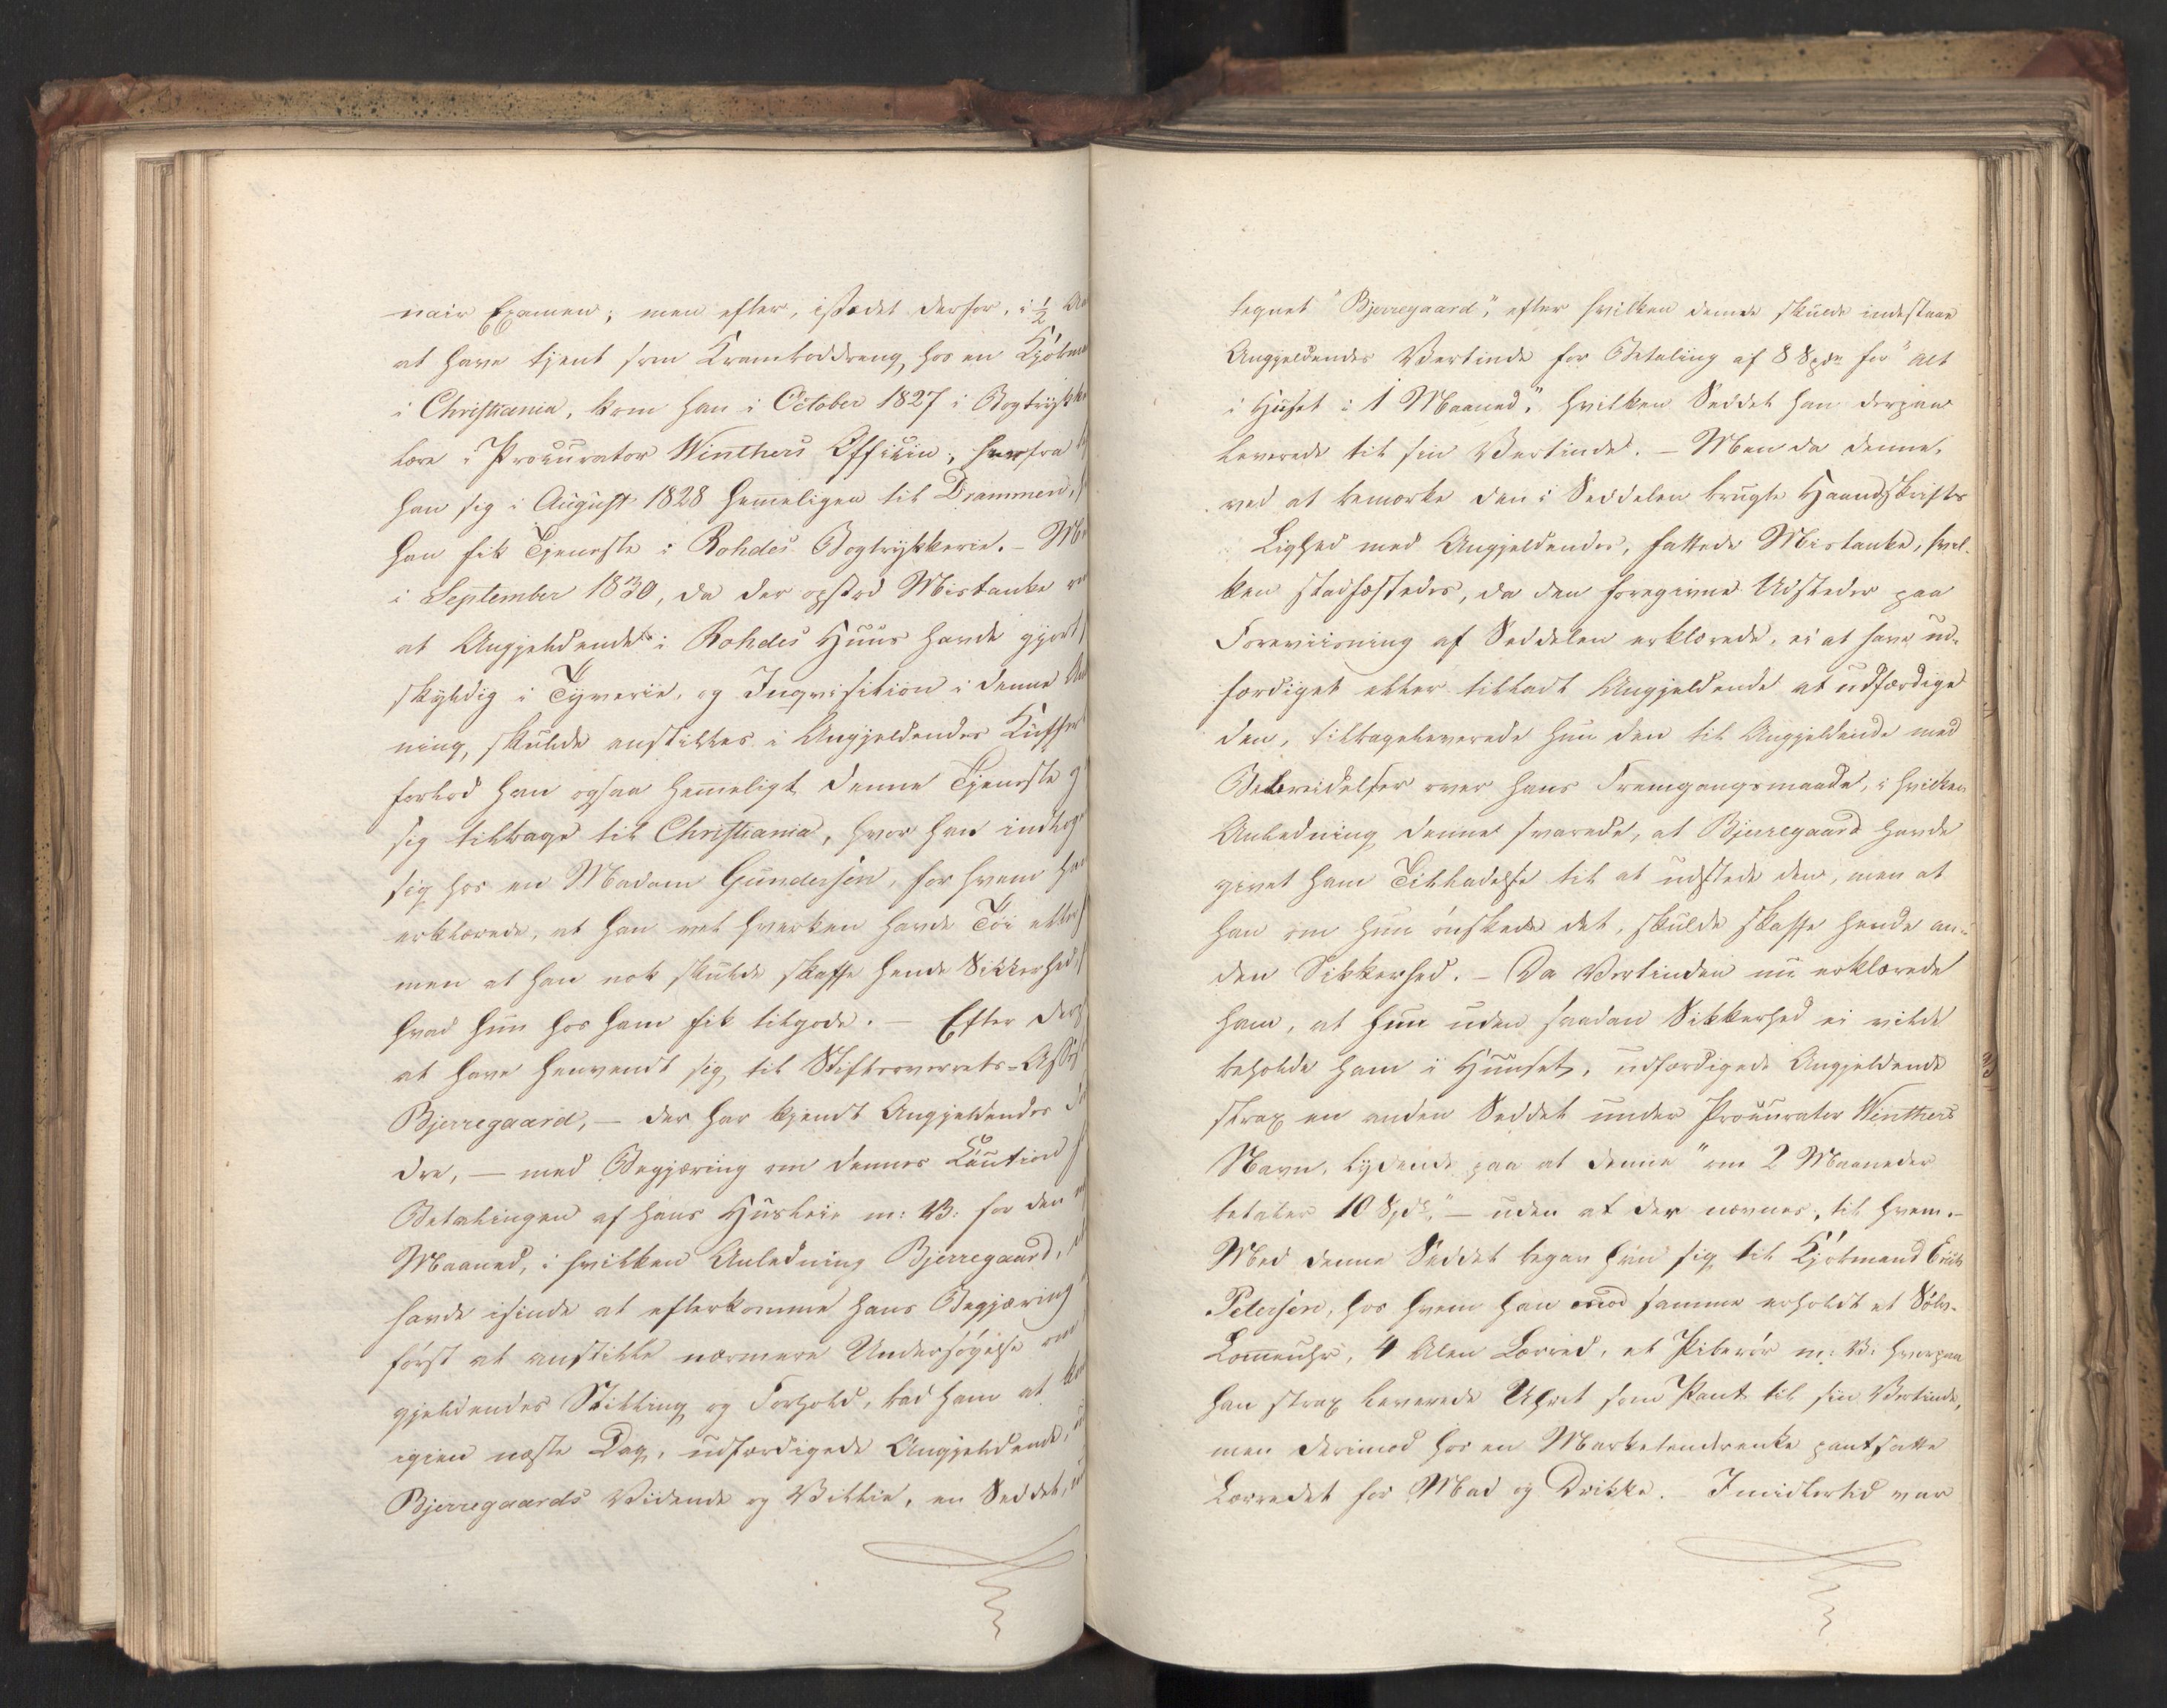 nair Examen; men efter, istedet derfor, i ½
at have tjent som Kramboddreng hos en
i Christiania, kom han i October 1827 i
lære i Procurator Winthers Officin, hvorfra
han sig i August 1828 hemeligen til Drammen,
han fik Tjeneste i Rohdes Bogtrykkerie. –
i September 1830, da der opstod Mistanke
at Angjeldende i Rohdes Huus havde gjort
skyldig i Tyverie, og Inqvisition i denne
ning, skulde anstilles i Angjeldendes
forlod han ogsaa hemeligt denne Tjeneste
sig tilbage til Christiania, hvor han
sig hos en Madam Gundersen, for hvem
erklærede, at han vel hverken havde Tøi
men at han nok skulde skaffe hende Sikkerhed
hvad hun hos ham fik tilgode. – Efter
at have henvendt sig til Stiftsoverrets-
Bjerregaard, – der har kjendt Angjeldendes
dre, – med Begjæring om dennes Caution
Betalingen af hans Husleie m: V: for den
Maaned, i hvilken Anledning Bjerregaard,
havde isinde at efterkomme hans Begjæring
først at anstille nærmere Undersøgelse om
gjeldendes Stilling og Forhold, bad ham at
igien næste Dag, udfærdigede Angjeldende,
Bjerregaards Vidende og Villie, en Seddel,
tegnet "Bjerregaard", efter hvilken denne skulde indestaae
Angjeldendes Vertinde for Betaling af 8 Spd. for "alt
i Huset i 1 Maaned", hvilken Seddel han derpaa
leverede til sin Vertinde. – Men da denne,
ved at bemærke den i Seddelen brugte Haandskrifts
Lighed med Angjeldendes, fattede Mistanke, hvil-
ken stadfæstedes, da den foregivne Udsteder paa
Foreviisning af Seddelen erklærede, ei at have ud-
færdiget eller tilladt Angjeldende at udfærdige
den, tilbageleverede hun den til Angjeldende med
Bebreidelser over hans Fremgangsmaade, i hvilken
Anledning denne svarede, at Bjerregaard havde
givet ham Tilladelse til at udstede den, men at
han om hun ønskede det, skulde skaffe hende an-
den Sikkerhed. – Da Vertinden nu erklærede
ham, at hun uden saadan Sikkerhed ei vilde
beholde ham i Huuset, udfærdigede Angjeldende
strax en anden Seddel under Procurator Winthers
Navn, lydende paa at denne "om 2 Maaneder
betaler 10 Spd.", – uden at der nævnes, til hvem. –
Med denne Seddel begav han sig til Kjøbmand
Petersen, hos hvem han mod samme erholdt et Sølv-
Lommeuhr, 4 Alen Lærred, et Piberør m: V: hvorpaa
han strax leverede Uhret som Pant til sin Vertinde,
men derimod hos en Marketenderenke pantsatte
Lærredet for Mad og Drikke. Imidlertid var